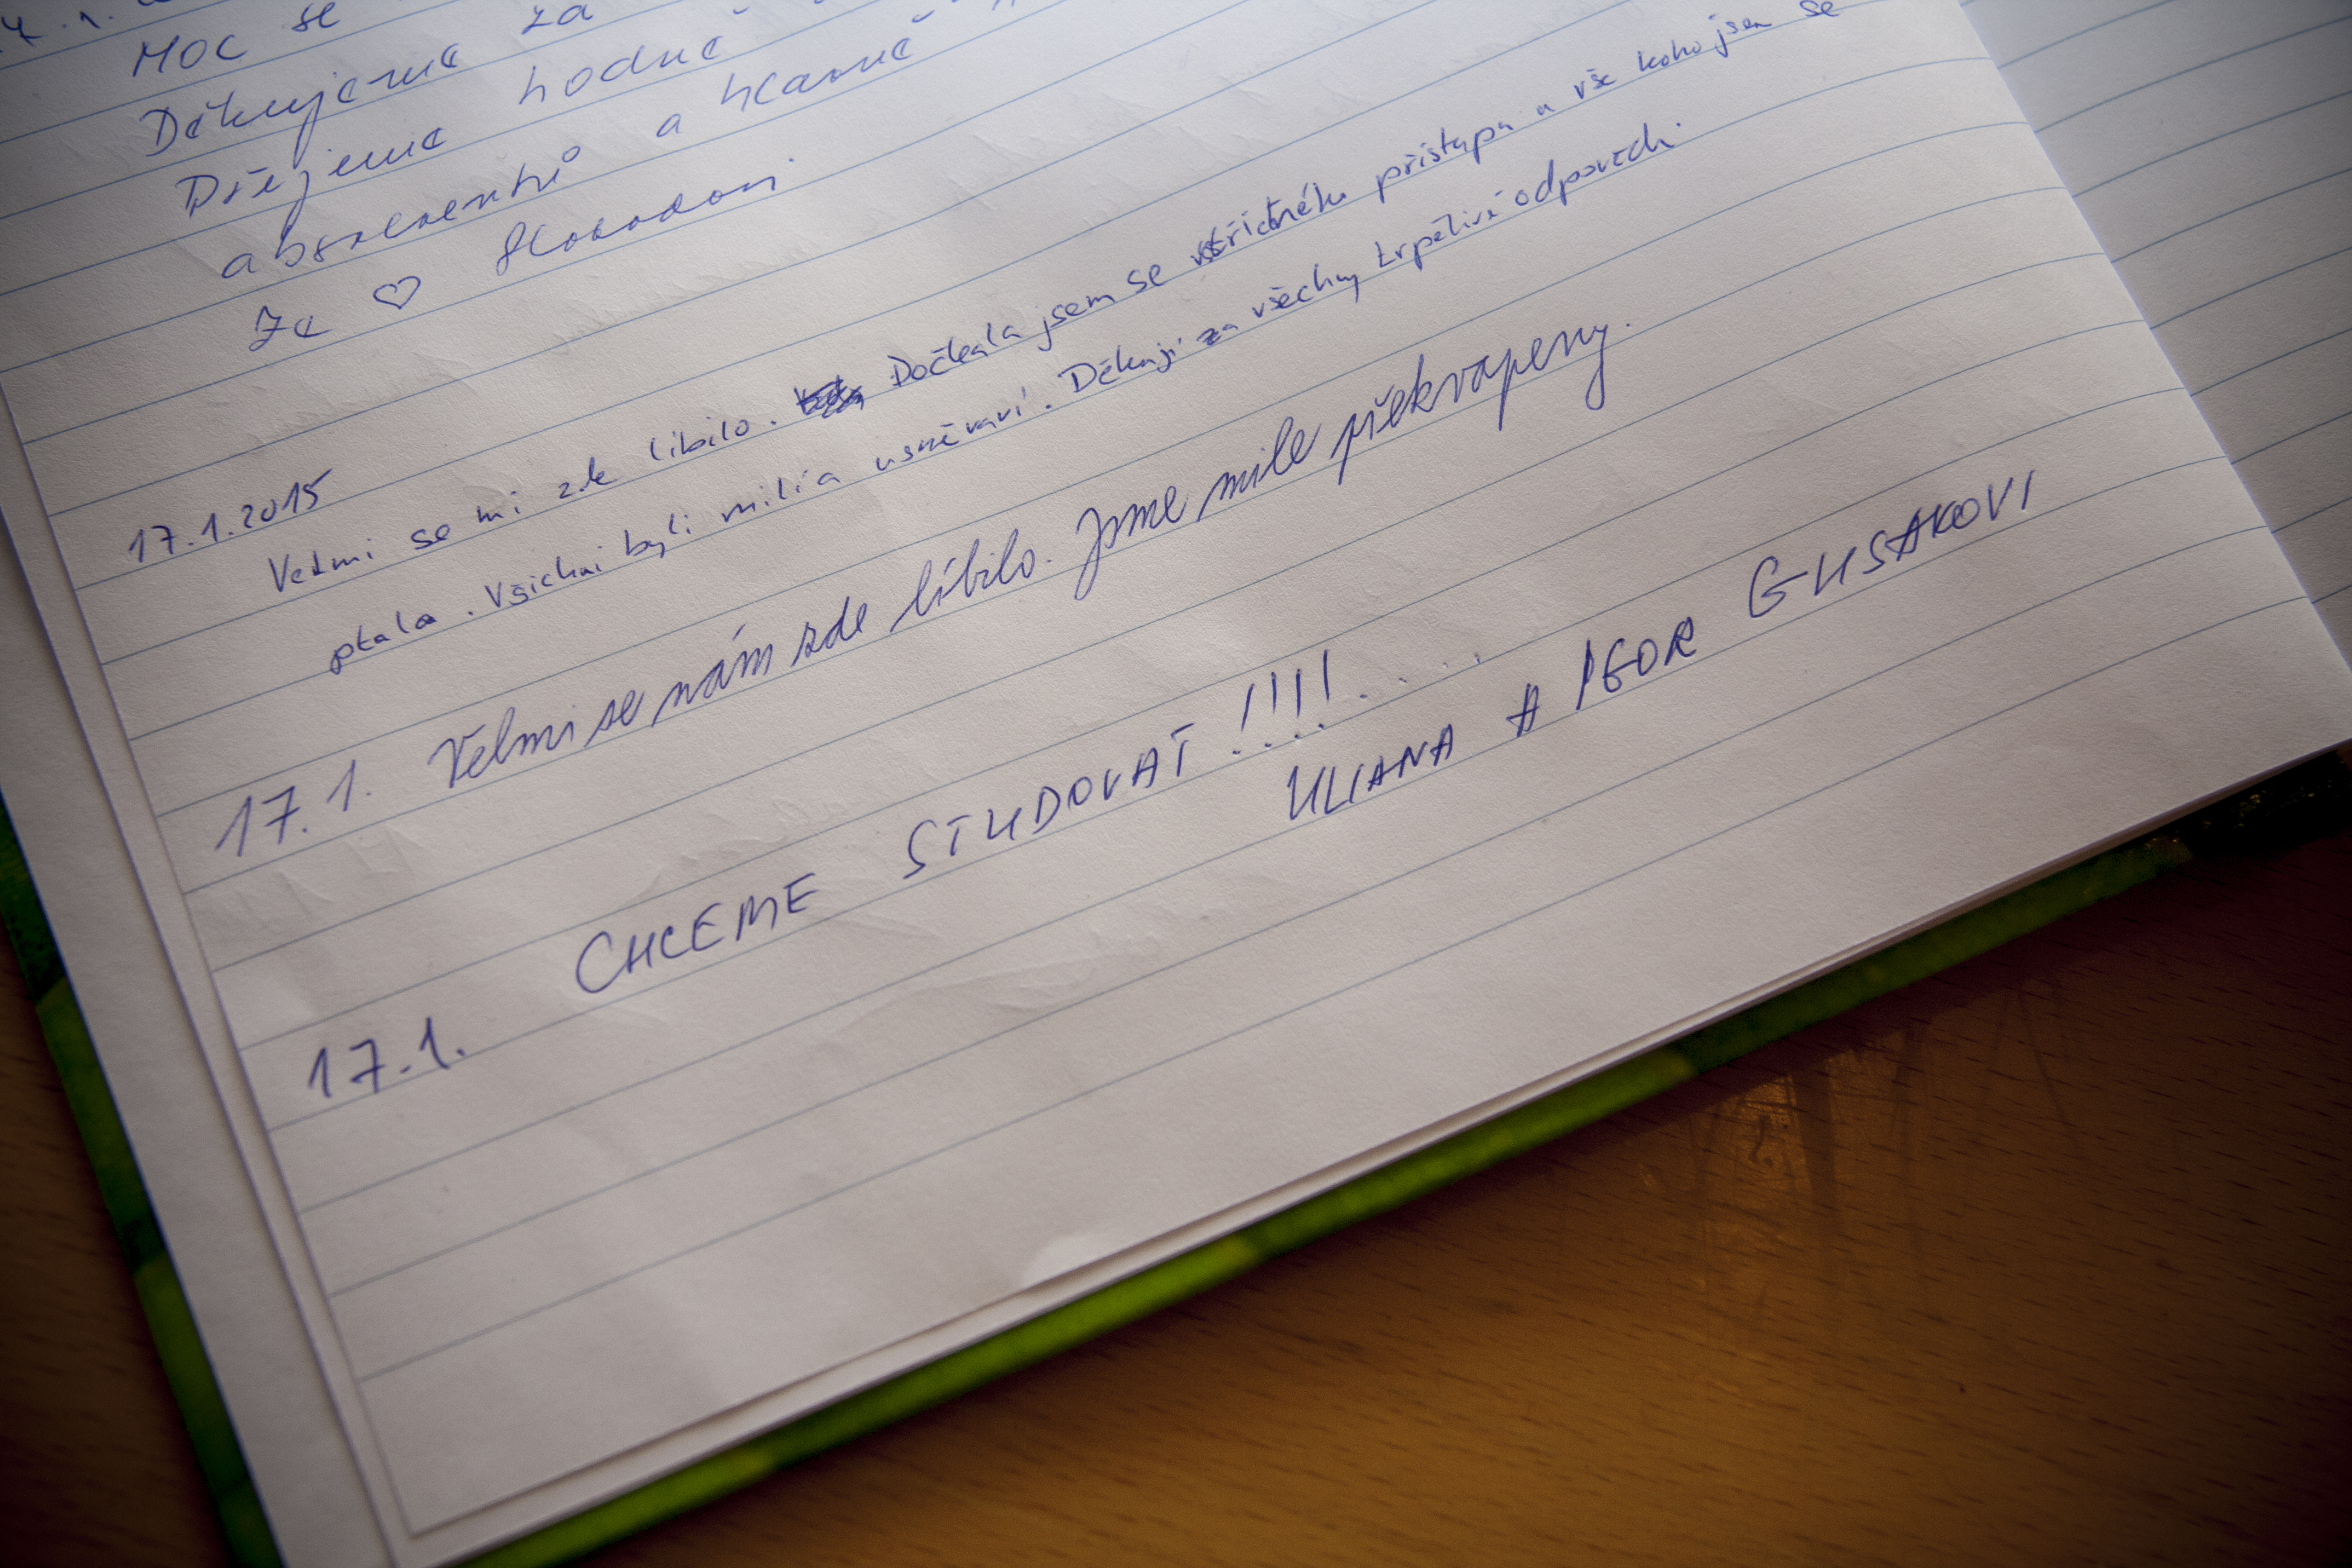 Moc se
Děkujeme za
Přejeme hodně
absolventů a hlavně
Ze ♡ Slobodovi
17.1.2015
Velmi se mi zde líbilo. Dočkala jsem se vstřícného přístupu u vše koho jsem se
ptala. Všichni byli milí a usměvaví. Děkuji za všechny trpělivé odpovědi.
17.1. Velmi se nám zde líbilo. Jsme mile překvapeny.
17.1. CHCEME STUDOVAT !!!!....
ULIANA A IGOR GUSAKOVI